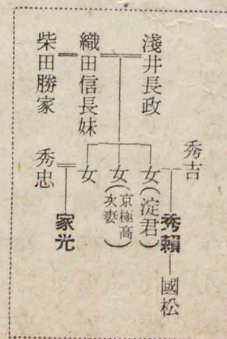 淺井長政
織田信長妹
柴田勝家
秀吉
女(淀君)
女(京極高次妻)
女
秀忠
秀賴
國松
家光